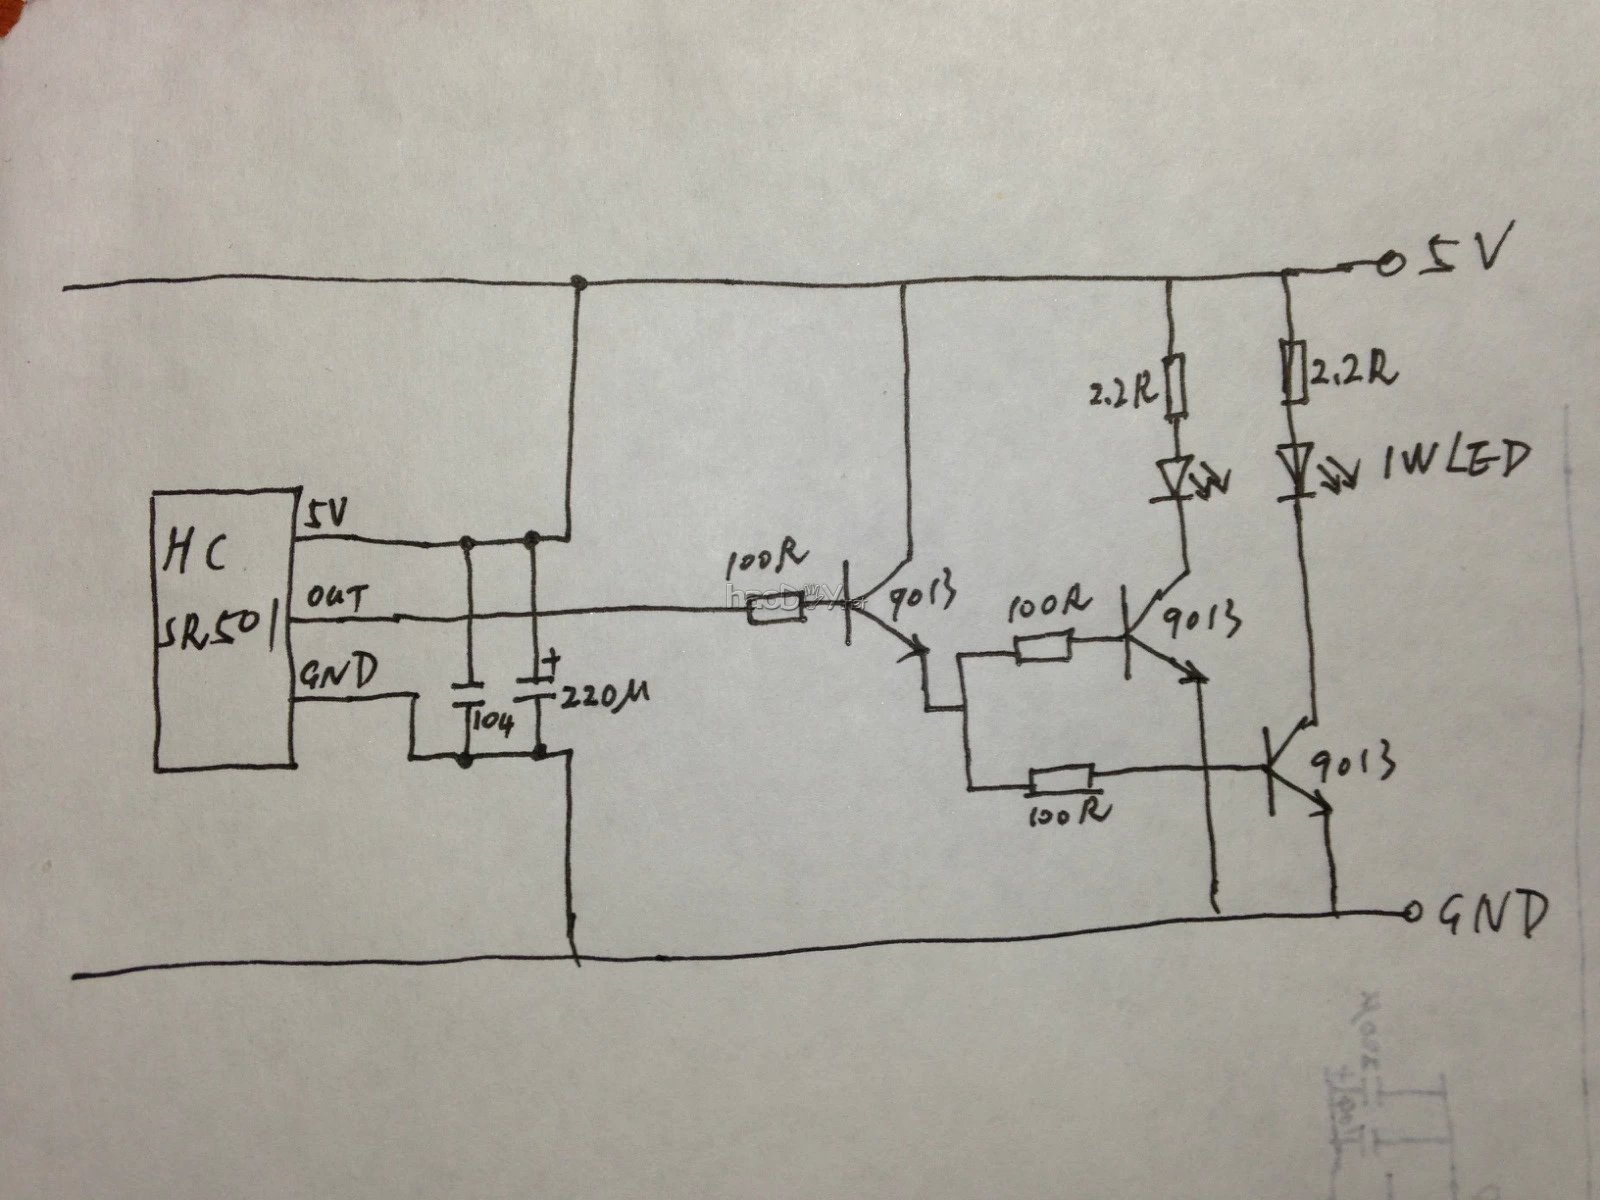 5V
2.2R
2.2R
1W LED
HC
SR501
5V
OUT
GND
104
+
220M
100R
9013
100R
9013
100R
9013
GND